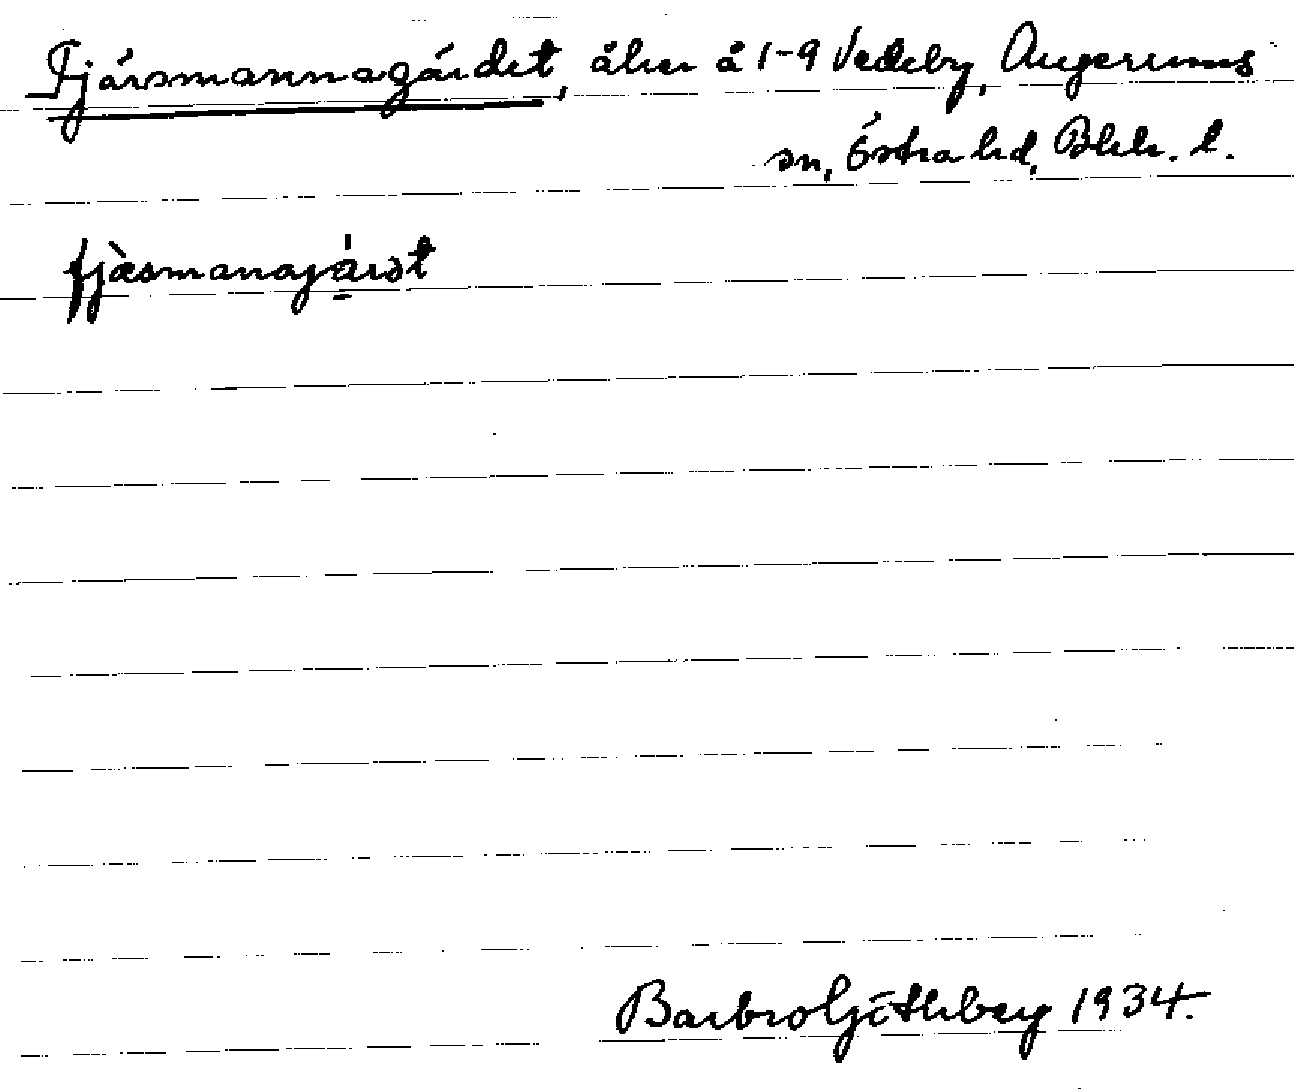 Fjärsmannagärdet, åker å 1-9 Vedeby, Augerums
sn, Östra hd, Blek. l.
fjäsmanajärət
Barbro Göthberg 1934.